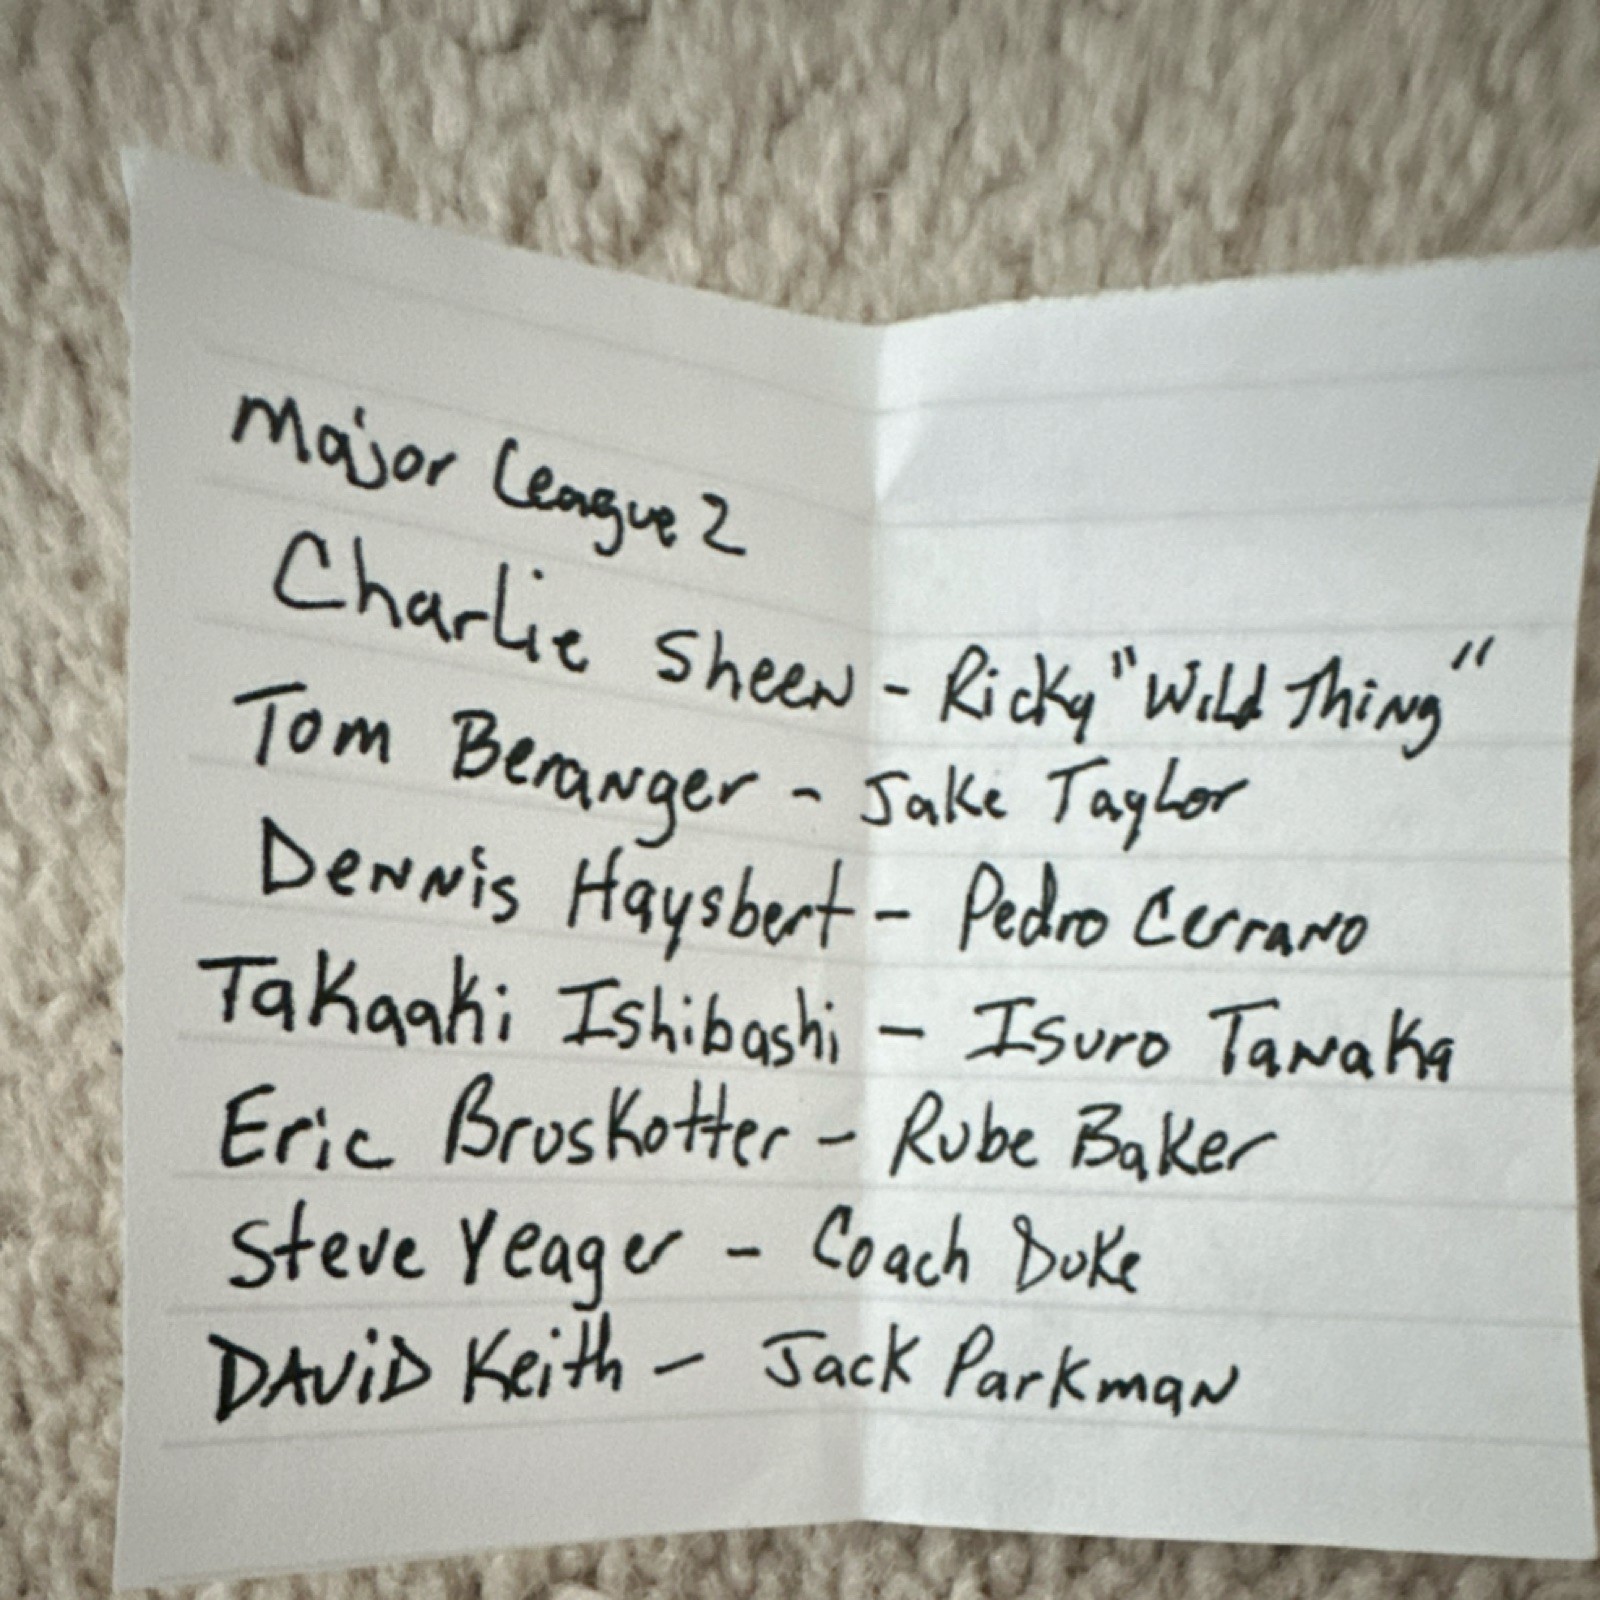 Major League 2
Charlie Sheen - Ricky "Wild Thing"
Tom Beranger - Jake Taylor
Dennis Haysbert - Pedro Cerrano
Takaaki Ishibashi - Isuro Tanaka
Eric Bruskotter - Rube Baker
Steve Yeager - Coach Duke
DAViD Keith - Jack Parkman